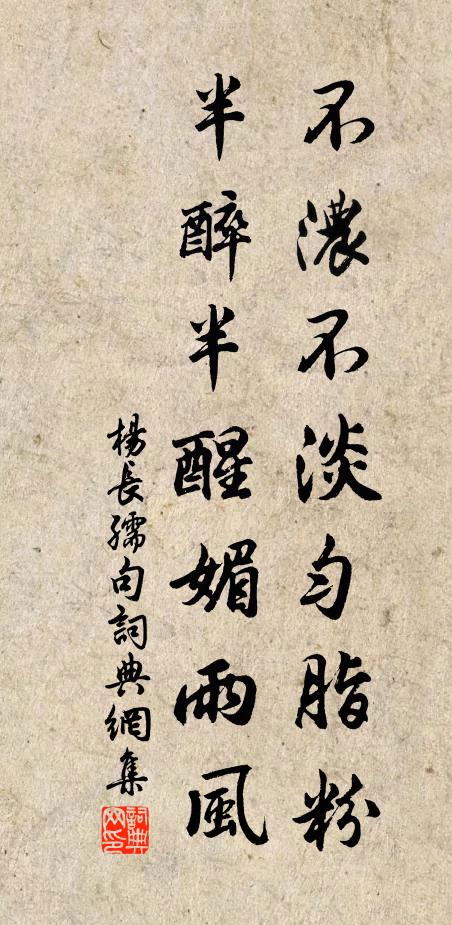 不濃不淡勻脂粉
半醉半醒媚雨風
楊長孺句詞典網集
詞典網印